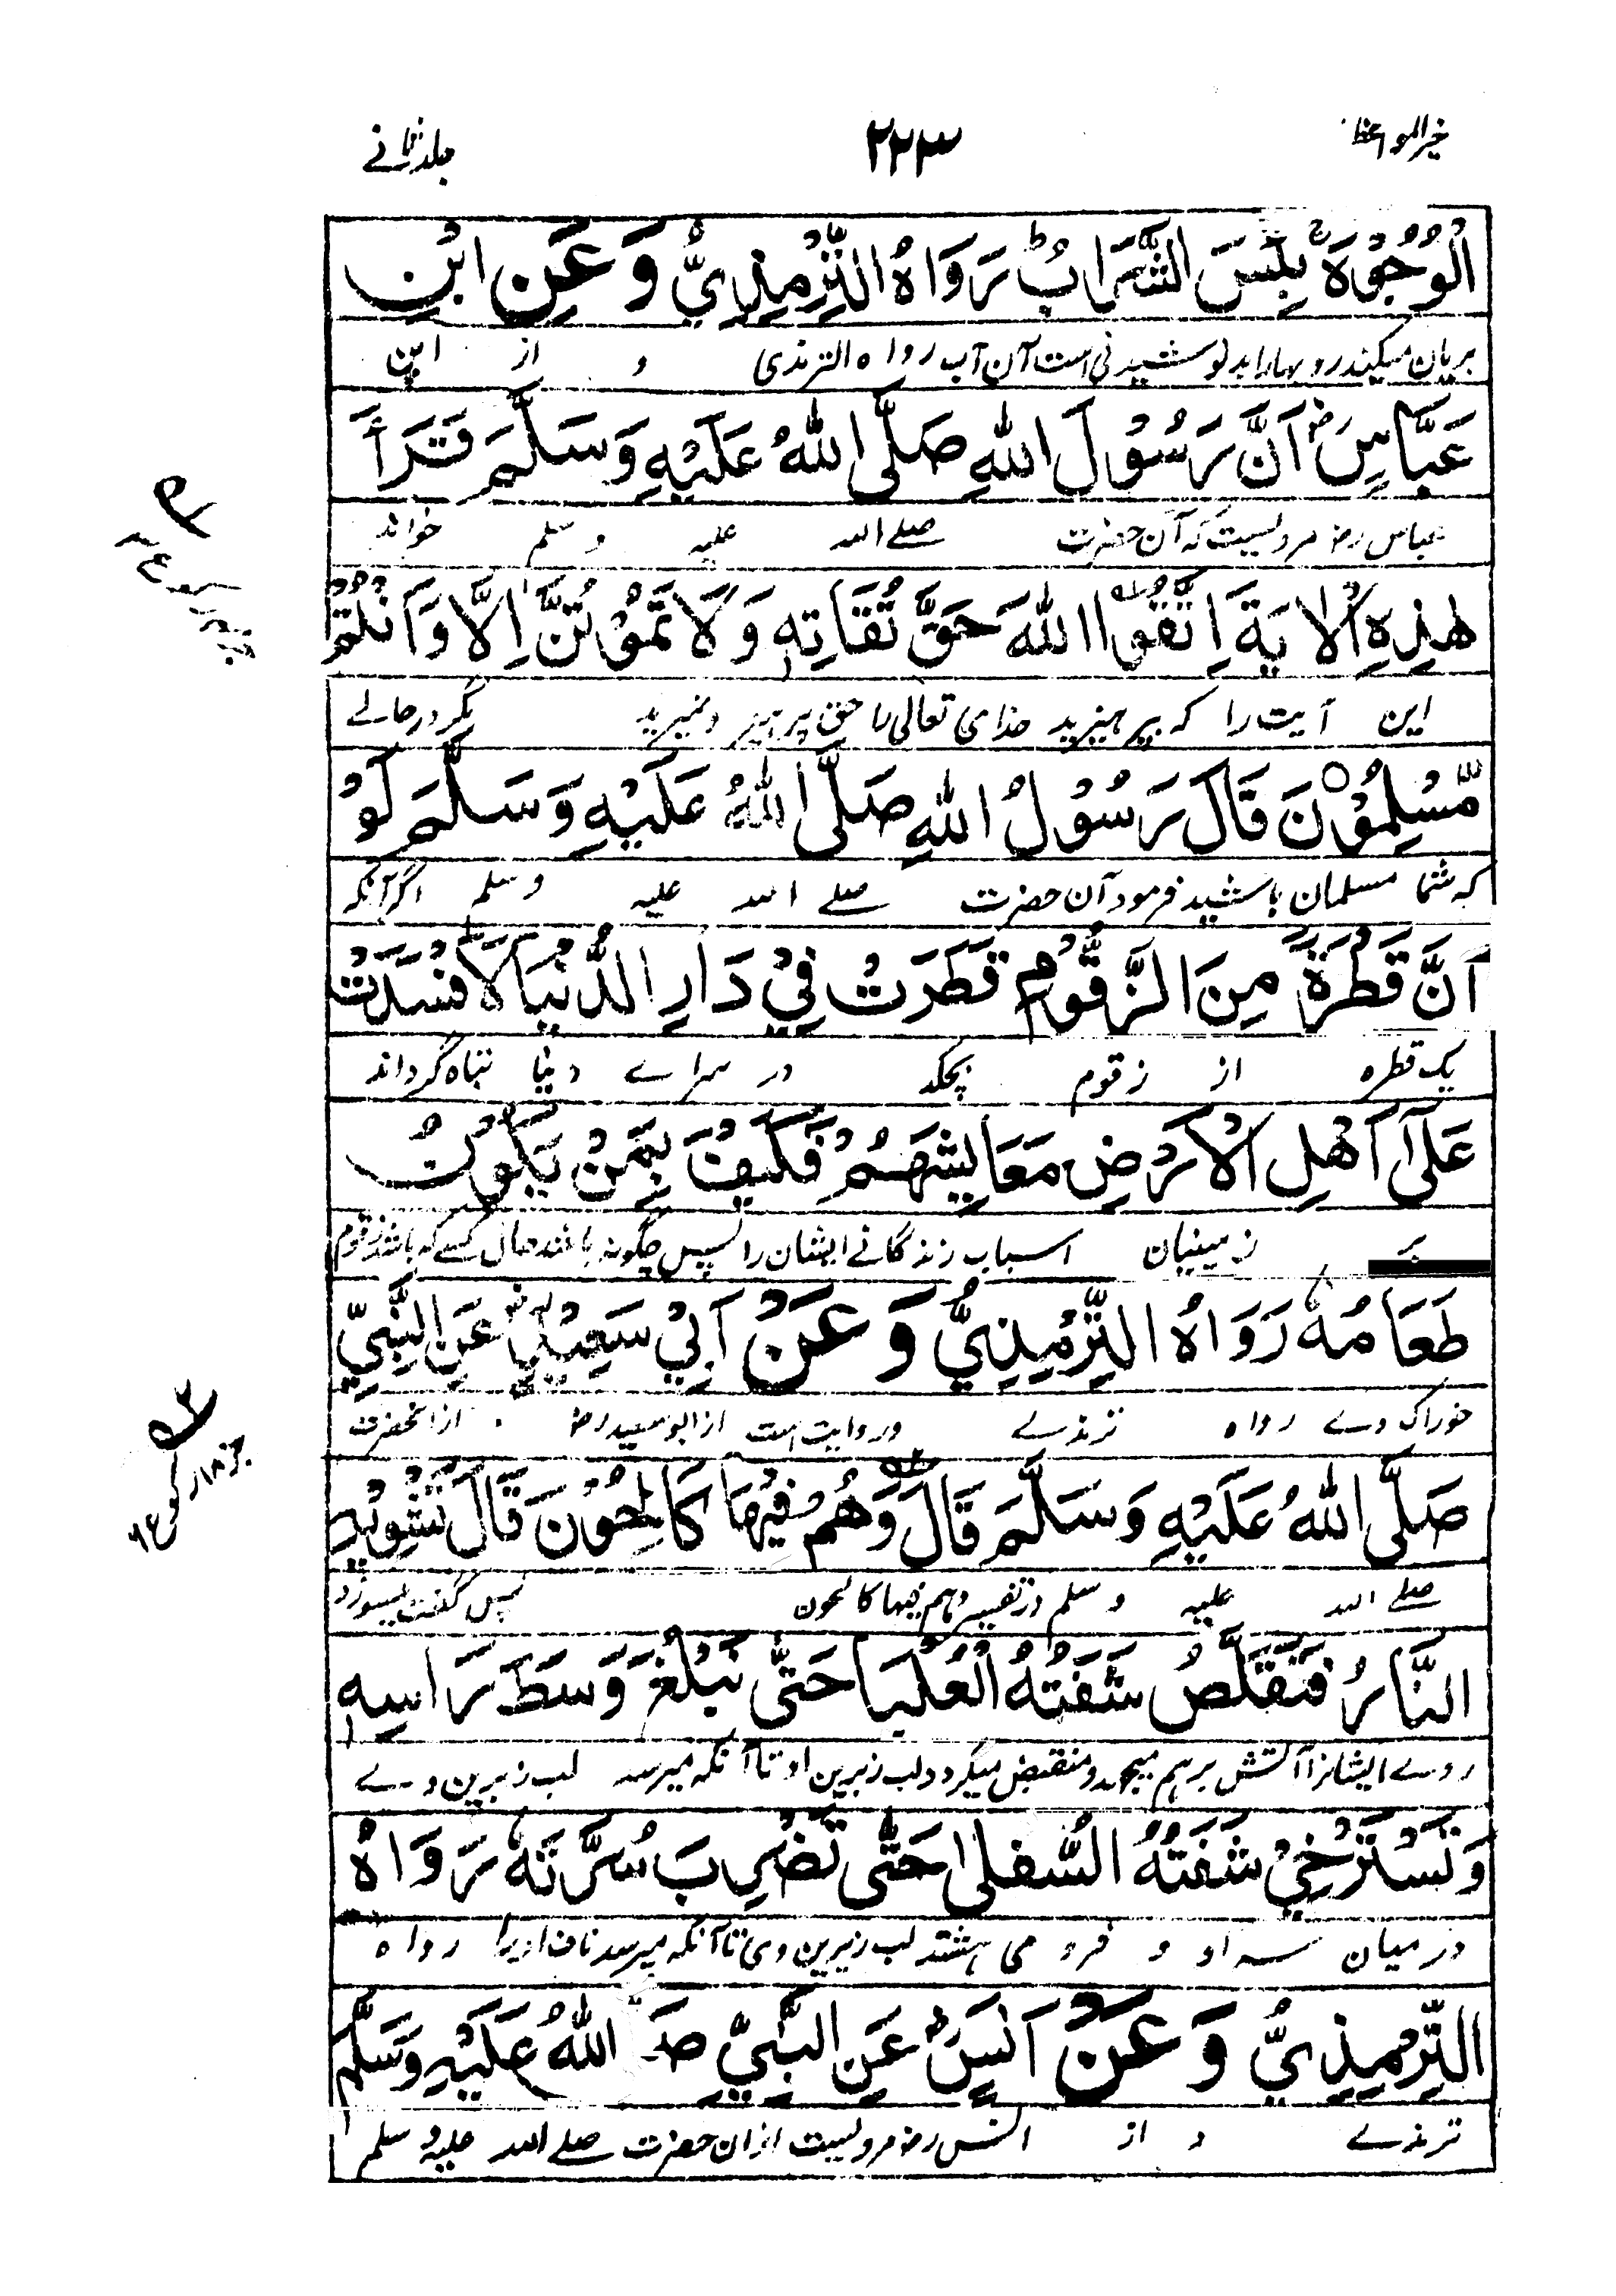 خیر المواعظ ۲۲۳ جلد ثانے
الْوُجُوْهَ بِئْسَ الشَّرَابُ رَوَاهُ التِّرْمِذِيُّ وَعَنِ ابْنِ
بریان میکند روبهارا بد نوشیدنی است آن آب رواه الترمذی و از ابن
عَبَّاسٍ رض اَنَّ رَسُوْلَ اللهِ صَلَّى اللهُ عَلَيْهِ وَسَلَّمَ قَرَأَ
عباس رض مرویست که آن حضرت صلے الله علیه وسلم خواند
هٰذِهِ الْاٰيَةَ اِتَّقُوا اللهَ حَقَّ تُقَاتِهٖ وَلَا تَمُوْتُنَّ اِلَّا وَاَنْتُمْ
این آیت را که بپرهیزید خدای تعالی را حق پرهیز و نمیرید مگر در حالے
مُّسْلِمُوْنَ قَالَ رَسُوْلُ اللهِ صَلَّى اللهُ عَلَيْهِ وَسَلَّمَ لَوْ
که شما مسلمان باشید فرمود آن حضرت صلے الله علیه وسلم اگر آنکه
اَنَّ قَطْرَةً مِنَ الزَّقُّوْمِ قَطَرَتْ فِيْ دَارِ الدُّنْيَا لَاَفْسَدَتْ
یک قطره از زقوم بچکد در سراے دنیا تباه گرداند
عَلٰى اَهْلِ الْاَرْضِ مَعَايِشَهُمْ فَكَيْفَ بِمَنْ يَكُوْنُ
بر زمینیان اسباب زندگانے ایشان را پس چگونه باشد حال کسے که باشد زقوم
طَعَامُهٗ رَوَاهُ التِّرْمِذِيُّ وَعَنْ اَبِيْ سَعِيْدٍ رض عَنِ النَّبِيِّ
خوراک وے رواه ترمذے و روایت است از ابو سعید رض از آنحضرت
صَلَّى اللهُ عَلَيْهِ وَسَلَّمَ قَالَ وَهُمْ فِيْهَا كَالِحُوْنَ قَالَ تَشْوِيْهِ
صلے الله علیه وسلم در تفسیر وهم فیها کالحون پس گفت میسوزد
النَّارُ فَتَقَلَّصُ شَفَتُهُ الْعُلْيَا حَتّٰى تَبْلُغَ وَسَطَ رَاسِهٖ
روے ایشانرا آتش برهم و منقبض میگردد لب زبرین او تا آنکه میرسد لب زبرین وے
وَتَسْتَرْخِيْ شَفَتُهُ السُّفْلٰى حَتّٰى تَضْرِبَ سُرَّتَهٗ رَوَاهُ
در میان سر او و فرو می هشتد لب زیرین وی تا آنکه میرسد ناف او را رواه
التِّرْمِذِيُّ وَعَنْ اَنَسٍ رض عَنِ النَّبِيِّ صَ اللهُ عَلَيْهِ وَسَلَّمَ
ترمذے و از انس رض مرویست از ان حضرت صلے الله علیه وسلم